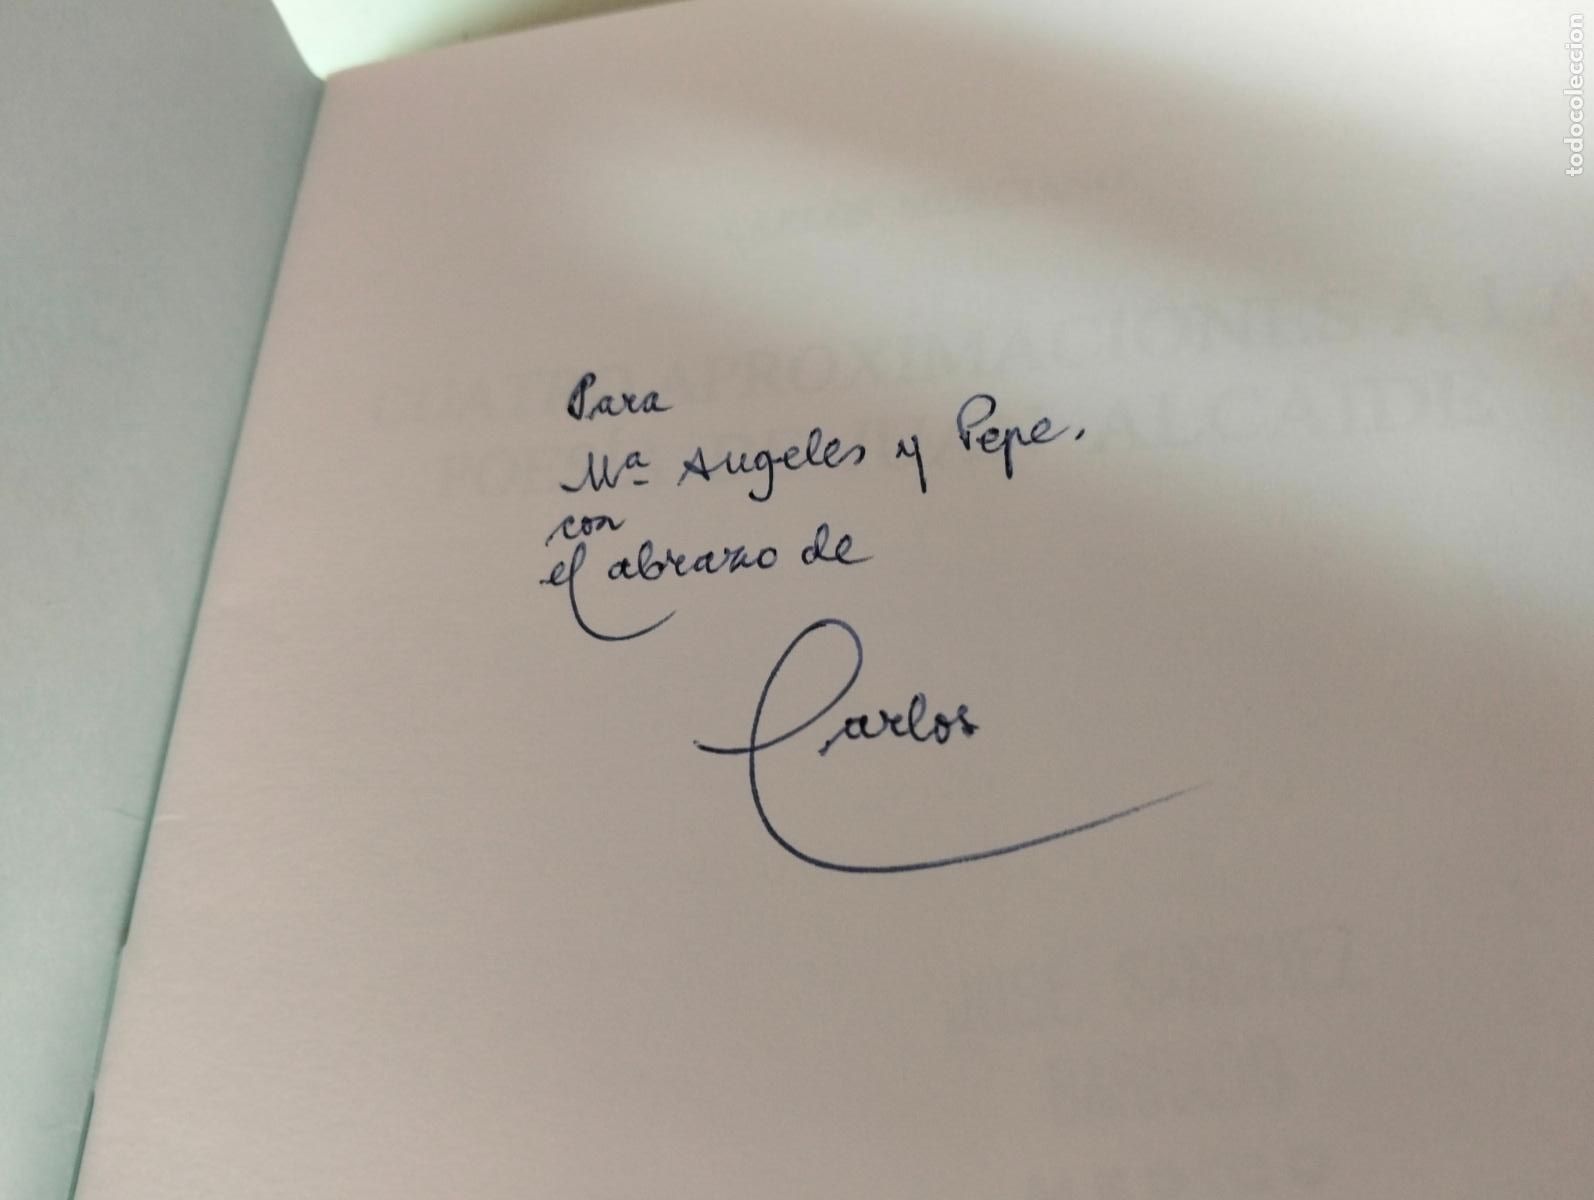 Para
Mª Angeles y Pepe.
con
el abrazo de
Carlos
APROXIMACIONES A LA
todocoleccion